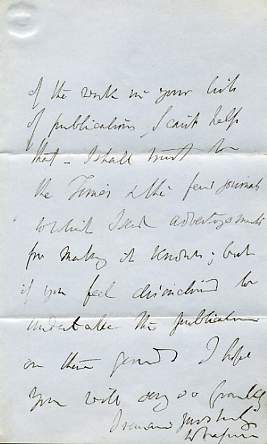 of the work in your lists
of publications I can't help
that – I shall trust to
the Times & the few journals
to which I send advertisements
for making it known; but
if you feel disinclined to
undertake the publication
on these grounds I hope
you will say so frankly
I remain yours truly